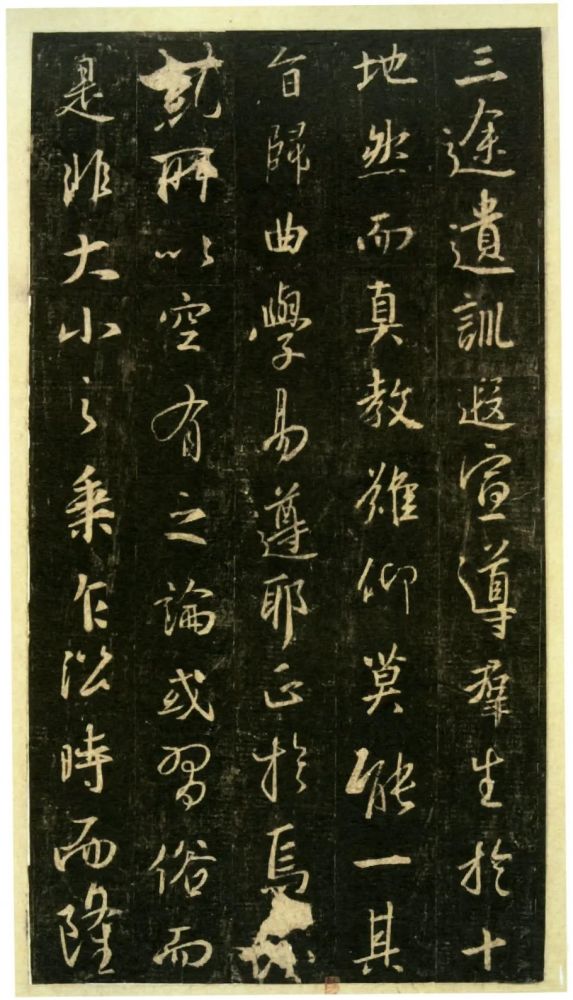 三途遺訓遐宣導羣生於十
地然而真教難仰莫能一其
旨歸曲學易遵耶正於焉
紛糺所以空有之論或習俗而
是非大小之乘乍沿時而隆